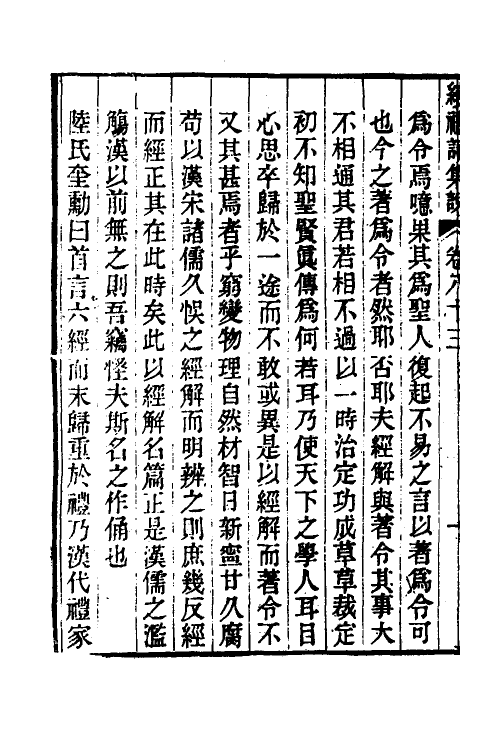 續禮記集說 卷八十三
為令焉噫果其為聖人復起不易之言以著為令可
也今之著為令者然耶否耶夫經解與著令其事大
不相通其君若相不過以一時治定功成草草裁定
初不知聖賢眞傳為何若耳乃使天下之學人耳目
心思卒歸於一途而不敢或異是以經解而著令不
又其甚焉者乎窮變物理自然材智日新寧甘久腐
苟以漢宋諸儒久悞之經解而明辨之則庶幾反經
而經正其在此時矣此以經解名篇正是漢儒之濫
觴漢以前無之則吾竊怪夫斯名之作俑也
陸氏奎勳曰首言六經而末歸重於禮乃漢代禮家